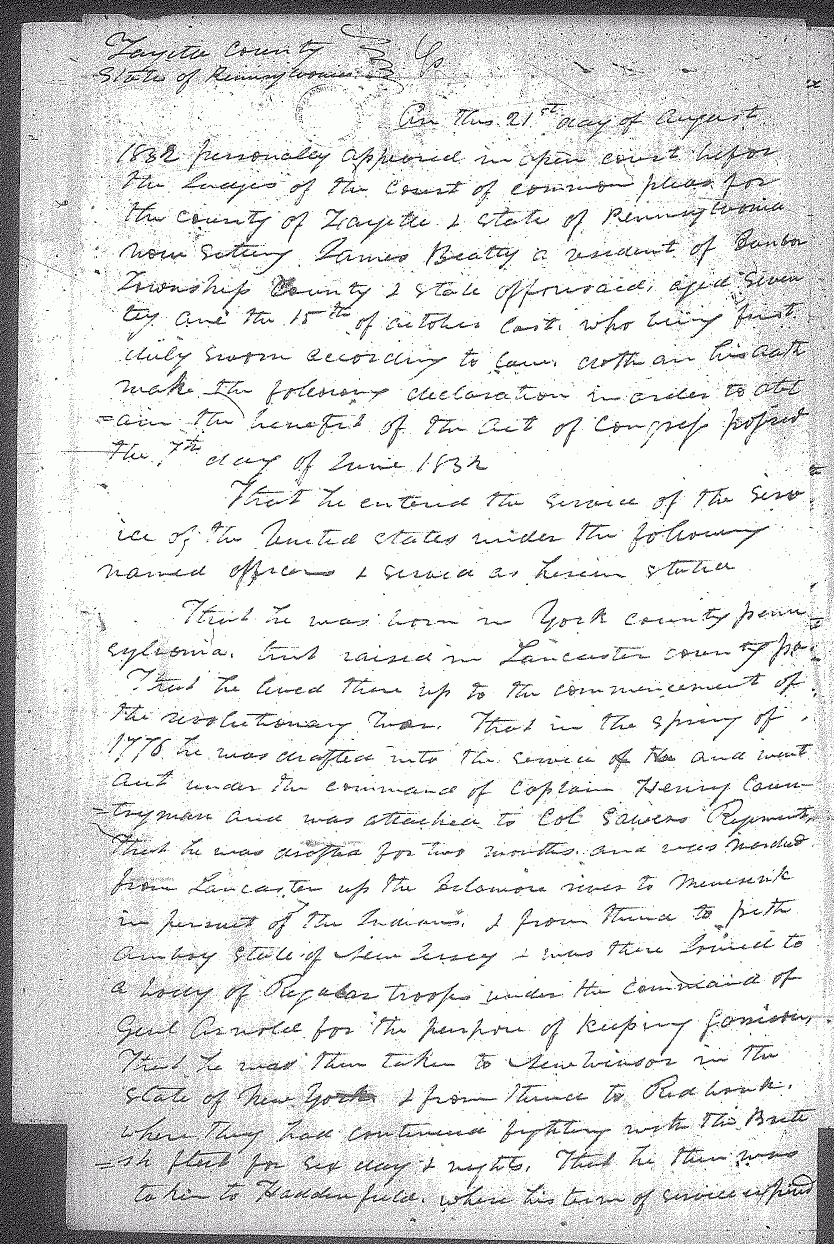 Fayette County
State of Pennsylvania } Ss
On this 21st day of August
1832 personally appeared in open court befor
the Judges of the Court of common pleas for
the County of Fayette & State of Pennsylvania
now setting James Beatty a resident of Dunbar
Township County & State afforesaid, aged Seven
ty one the 15th of october last. who being first
duly sworn according to law. doth on his oath
make the following declaration in order to obt
=ain the benefit of the act of Congress passed
the 7th day of June 1832
That he entered the service of the Serv
ice of the United States under the following
named officers & served as herein stated
That he was born in York county penn
sylvonia. but raised in Lancaster county pa.
That he lived there up to the commencement of
the revolutionary War. That in the spring of
1776 he was drafted into the service of the and went
out under the command of Captain Henry Coun-
=tryman and was attached to Col Regiment,
That he was drafted for two months. and was marched
from Lancaster up the Delaware river to
in persuit of the Indians. & from thence to peth
amboy State of New Jersey & was there Joined to
a body of Regular troops under the command of
Genl Arnold for the purpose of keeping garrison,
That he was then taken to New Winsor in the
State of New York & from thence to Redbank.
where they had continued fighting with the Brit
=sh fleet for six day & nights. That he then was
taken to Haddenfield. where his term of service expired